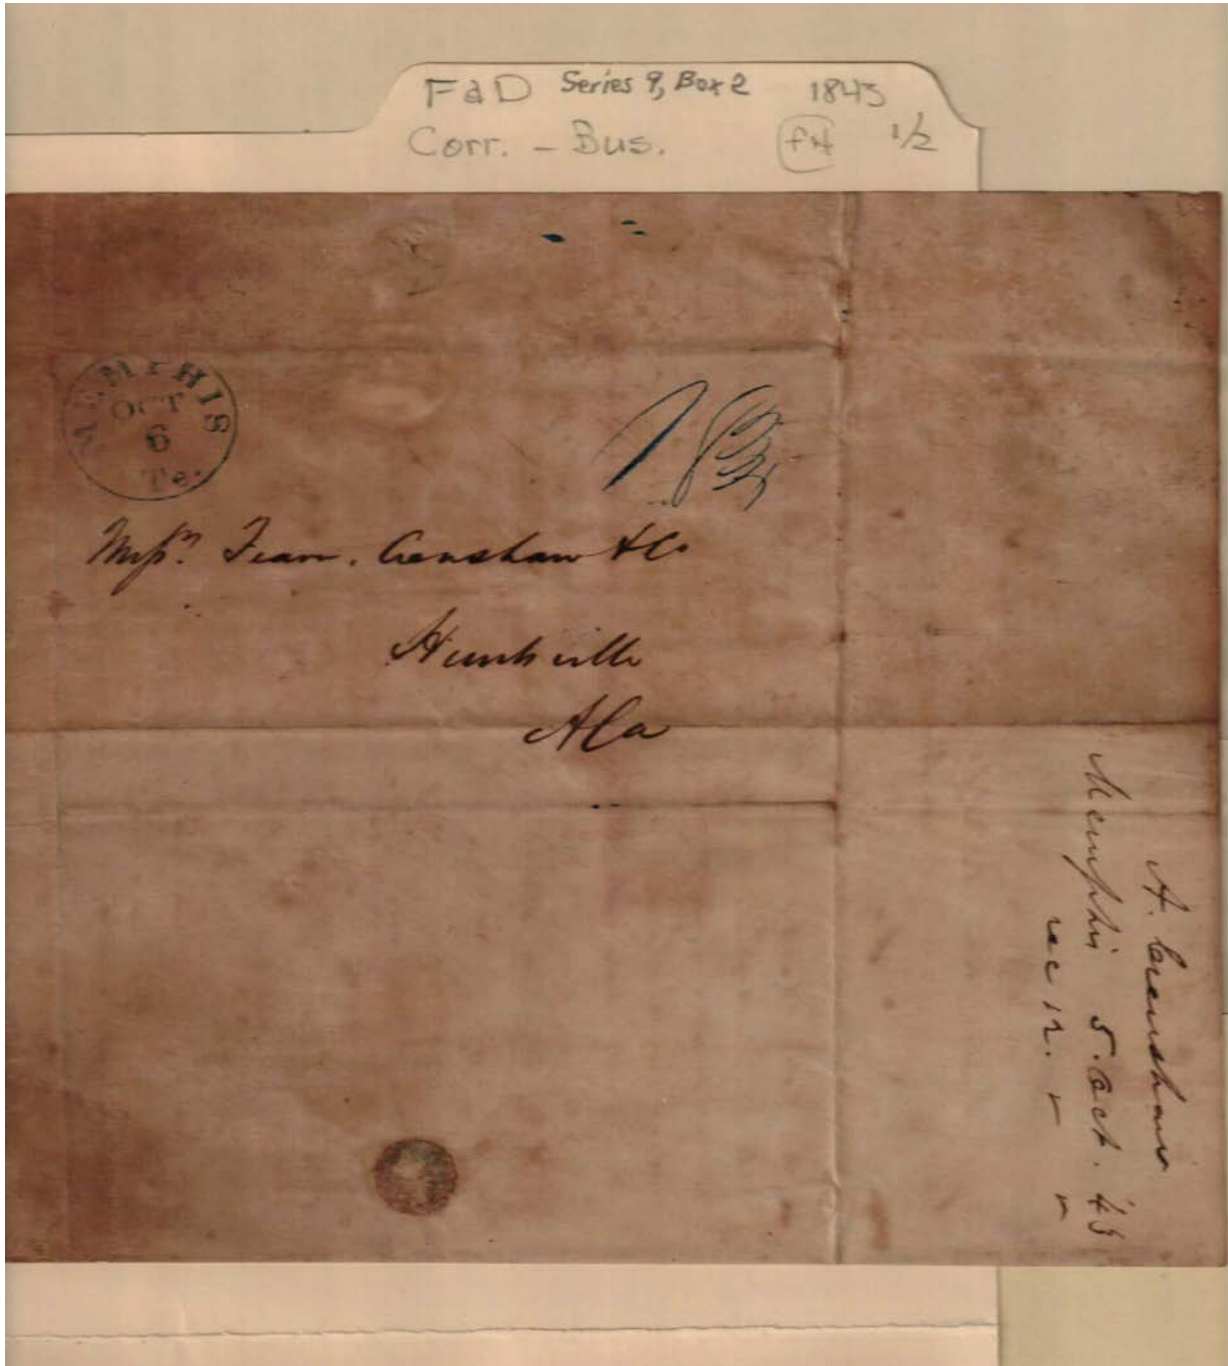 F&D Series 9, Box 2 1843
Corr. - Bus. 1/2
MEMPHIS
OCT
6
Te.
Messrs. Fearn. Crenshaw & Co
Huntsville
Ala
A. Crenshaw
Memphis 5. Oct. 43
rec 12.